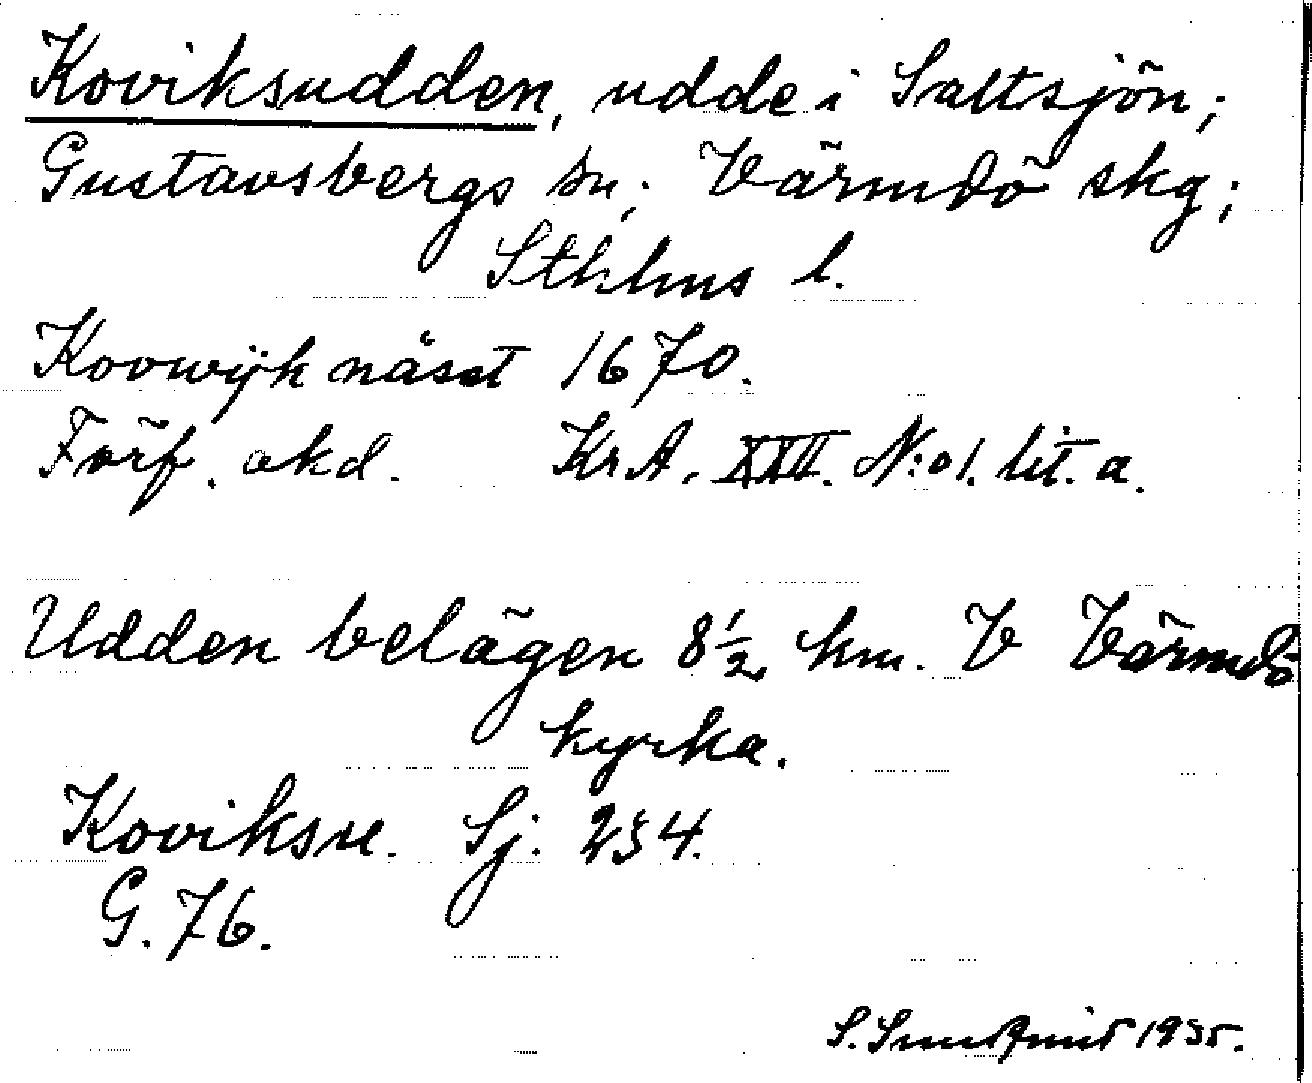 Koviksudden, udde i Saltsjön;
Gustavsbergs sn; Värmdö skg;
Sthlms l.
Koowijk näset 1670.
Förf. okd. KrA. XXII. N:o 1. lit. a.
Udden belägen 8½ km. V Värmdö
kyrka.
Koviksu. Sj. 234.
G. 76.
S. Sundqvist 1935.